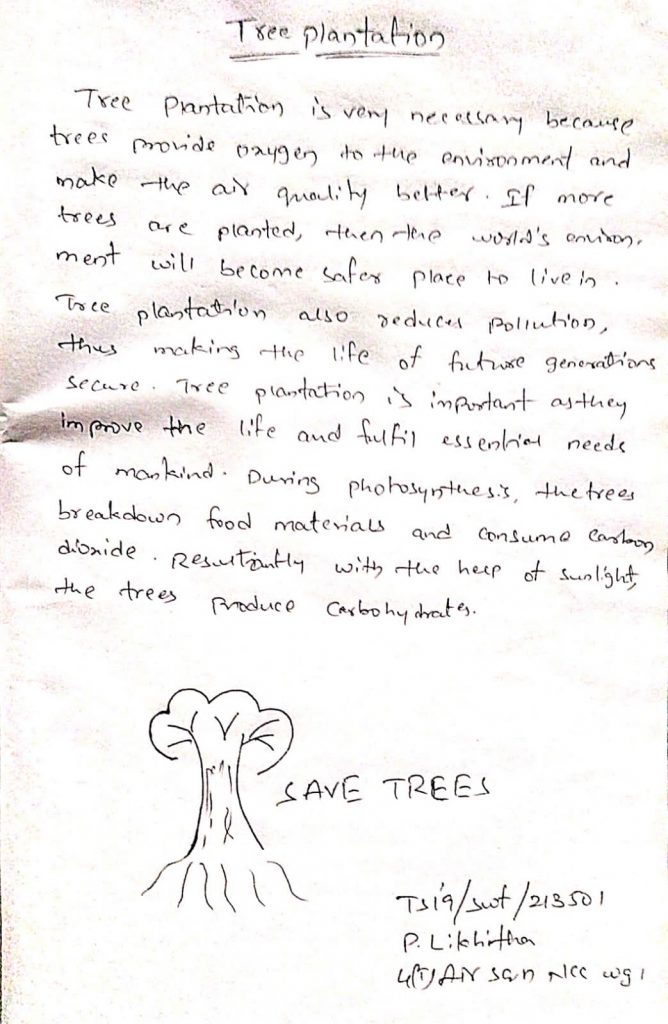 Tree plantation
Tree Plantation is very necessary because
trees provide oxygen to the environment and
make the air quality better. If more
trees are planted, then the world's environ,
ment will become safer place to live in.
Tree plantation also reduces pollution,
thus making the life of future generations
secure. Tree plantation is important as they
improve the life and fulfil essential needs
of mankind. During photosynthesis, the trees
breakdown food materials and consume carbon
dioxide. Resultantly with the help of sunlight,
the trees produce carbohydrates.
SAVE TREES
TS19/SWF/213501
P. Likhitha
4(T) AIR SQN NCC WGL